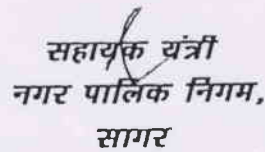 सहायक यंत्री
नगर पालिक निगम,
सागर